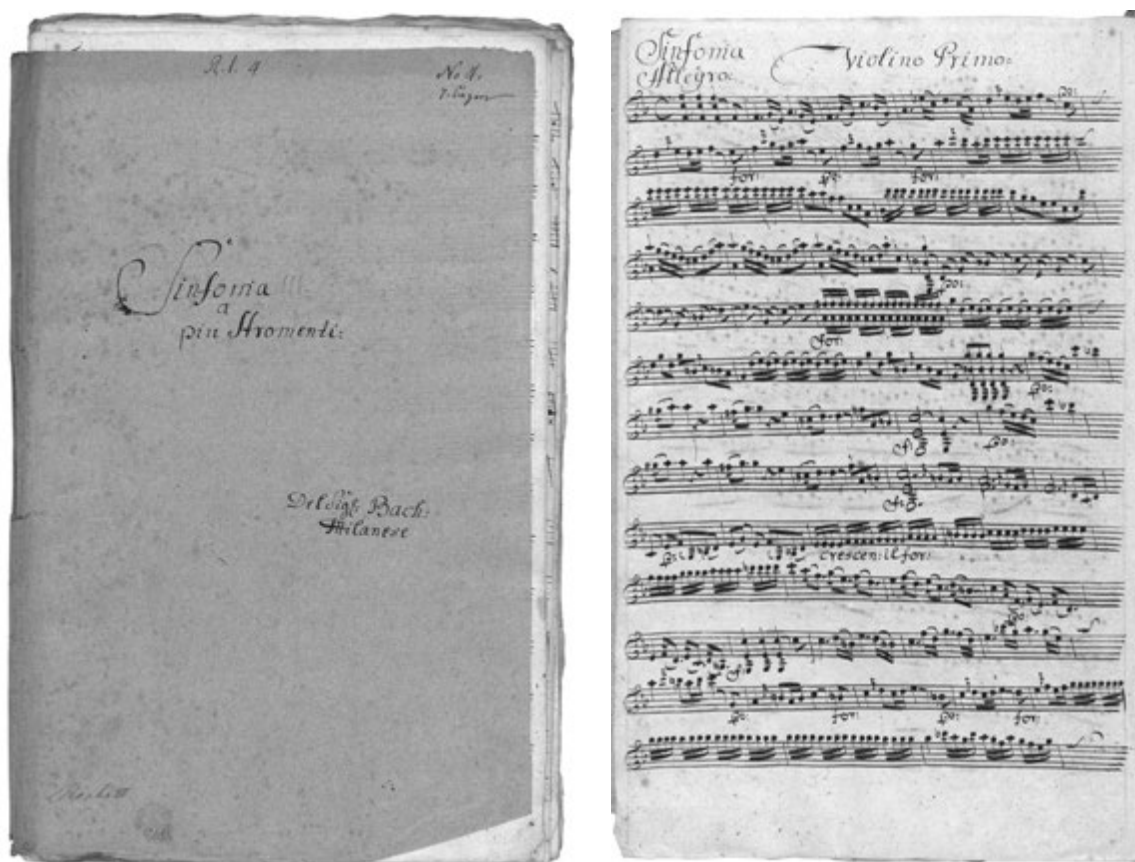 No 4.
Sinfonia
a
piu Stromenti:
Del Sigr. Bach:
Milanese
Sinfonia
Allegro:
Violino Primo:
po:
for: po: for:
po:
for:
po:
f: po:
f:
p: crescen: il for:
po:
f:
po: for: po: for: